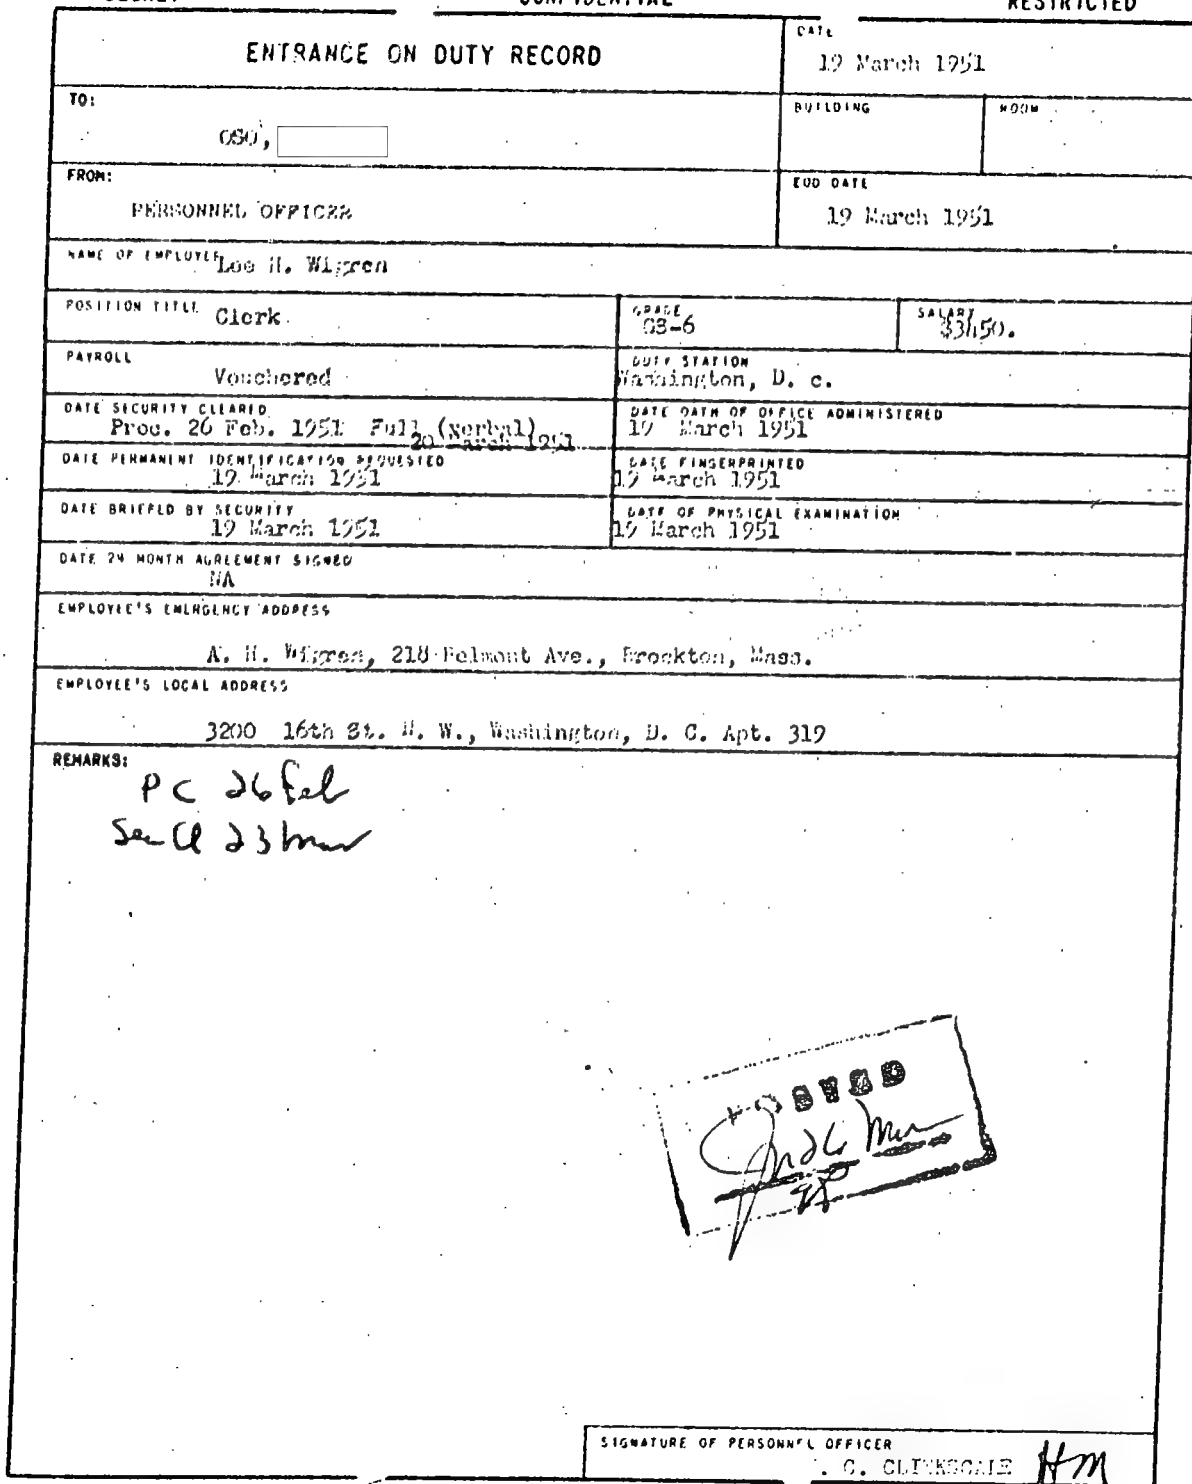 SECRET CONFIDENTIAL RESTRICTED
ENTRANCE ON DUTY RECORD
DATE
19 March 1951
TO:
OSO,
BUILDING
ROOM
FROM:
PERSONNEL OFFICER
EOD DATE
19 March 1951
NAME OF EMPLOYEE Lee H. Wigren
POSITION TITLE Clerk
GRADE
GS-6
SALARY
$3450.
PAYROLL
Vouchered
DUTY STATION
Washington, D. c.
DATE SECURITY CLEARED
Proc. 26 Feb. 1951 Full (verbal)
20 March 1951
DATE OATH OF OFFICE ADMINISTERED
19 March 1951
DATE PERMANENT IDENTIFICATION REQUESTED
19 March 1951
DATE FINGERPRINTED
19 March 1951
DATE BRIEFED BY SECURITY
19 March 1951
DATE OF PHYSICAL EXAMINATION
19 March 1951
DATE 24 MONTH AGREEMENT SIGNED
NA
EMPLOYEE'S EMERGENCY ADDRESS
A. H. Wigren, 218 Belmont Ave., Brockton, Mass.
EMPLOYEE'S LOCAL ADDRESS
3200 16th St. N. W., Washington, D. C. Apt. 319
REMARKS:
PC 26 Feb
Sec Cl 23 Mar
POSTED
26 Mar
SIGNATURE OF PERSONNEL OFFICER
. C. CLINKSCALE HM